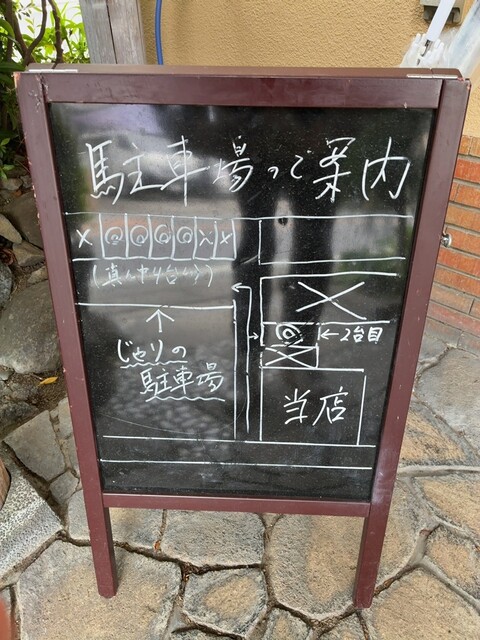 駐車場のご案内
X ◎ ◎ ◎ ◎ X X
(真ん中4台分)
X
◎ ←2台目
X
↑
じゃりの
駐車場
当店